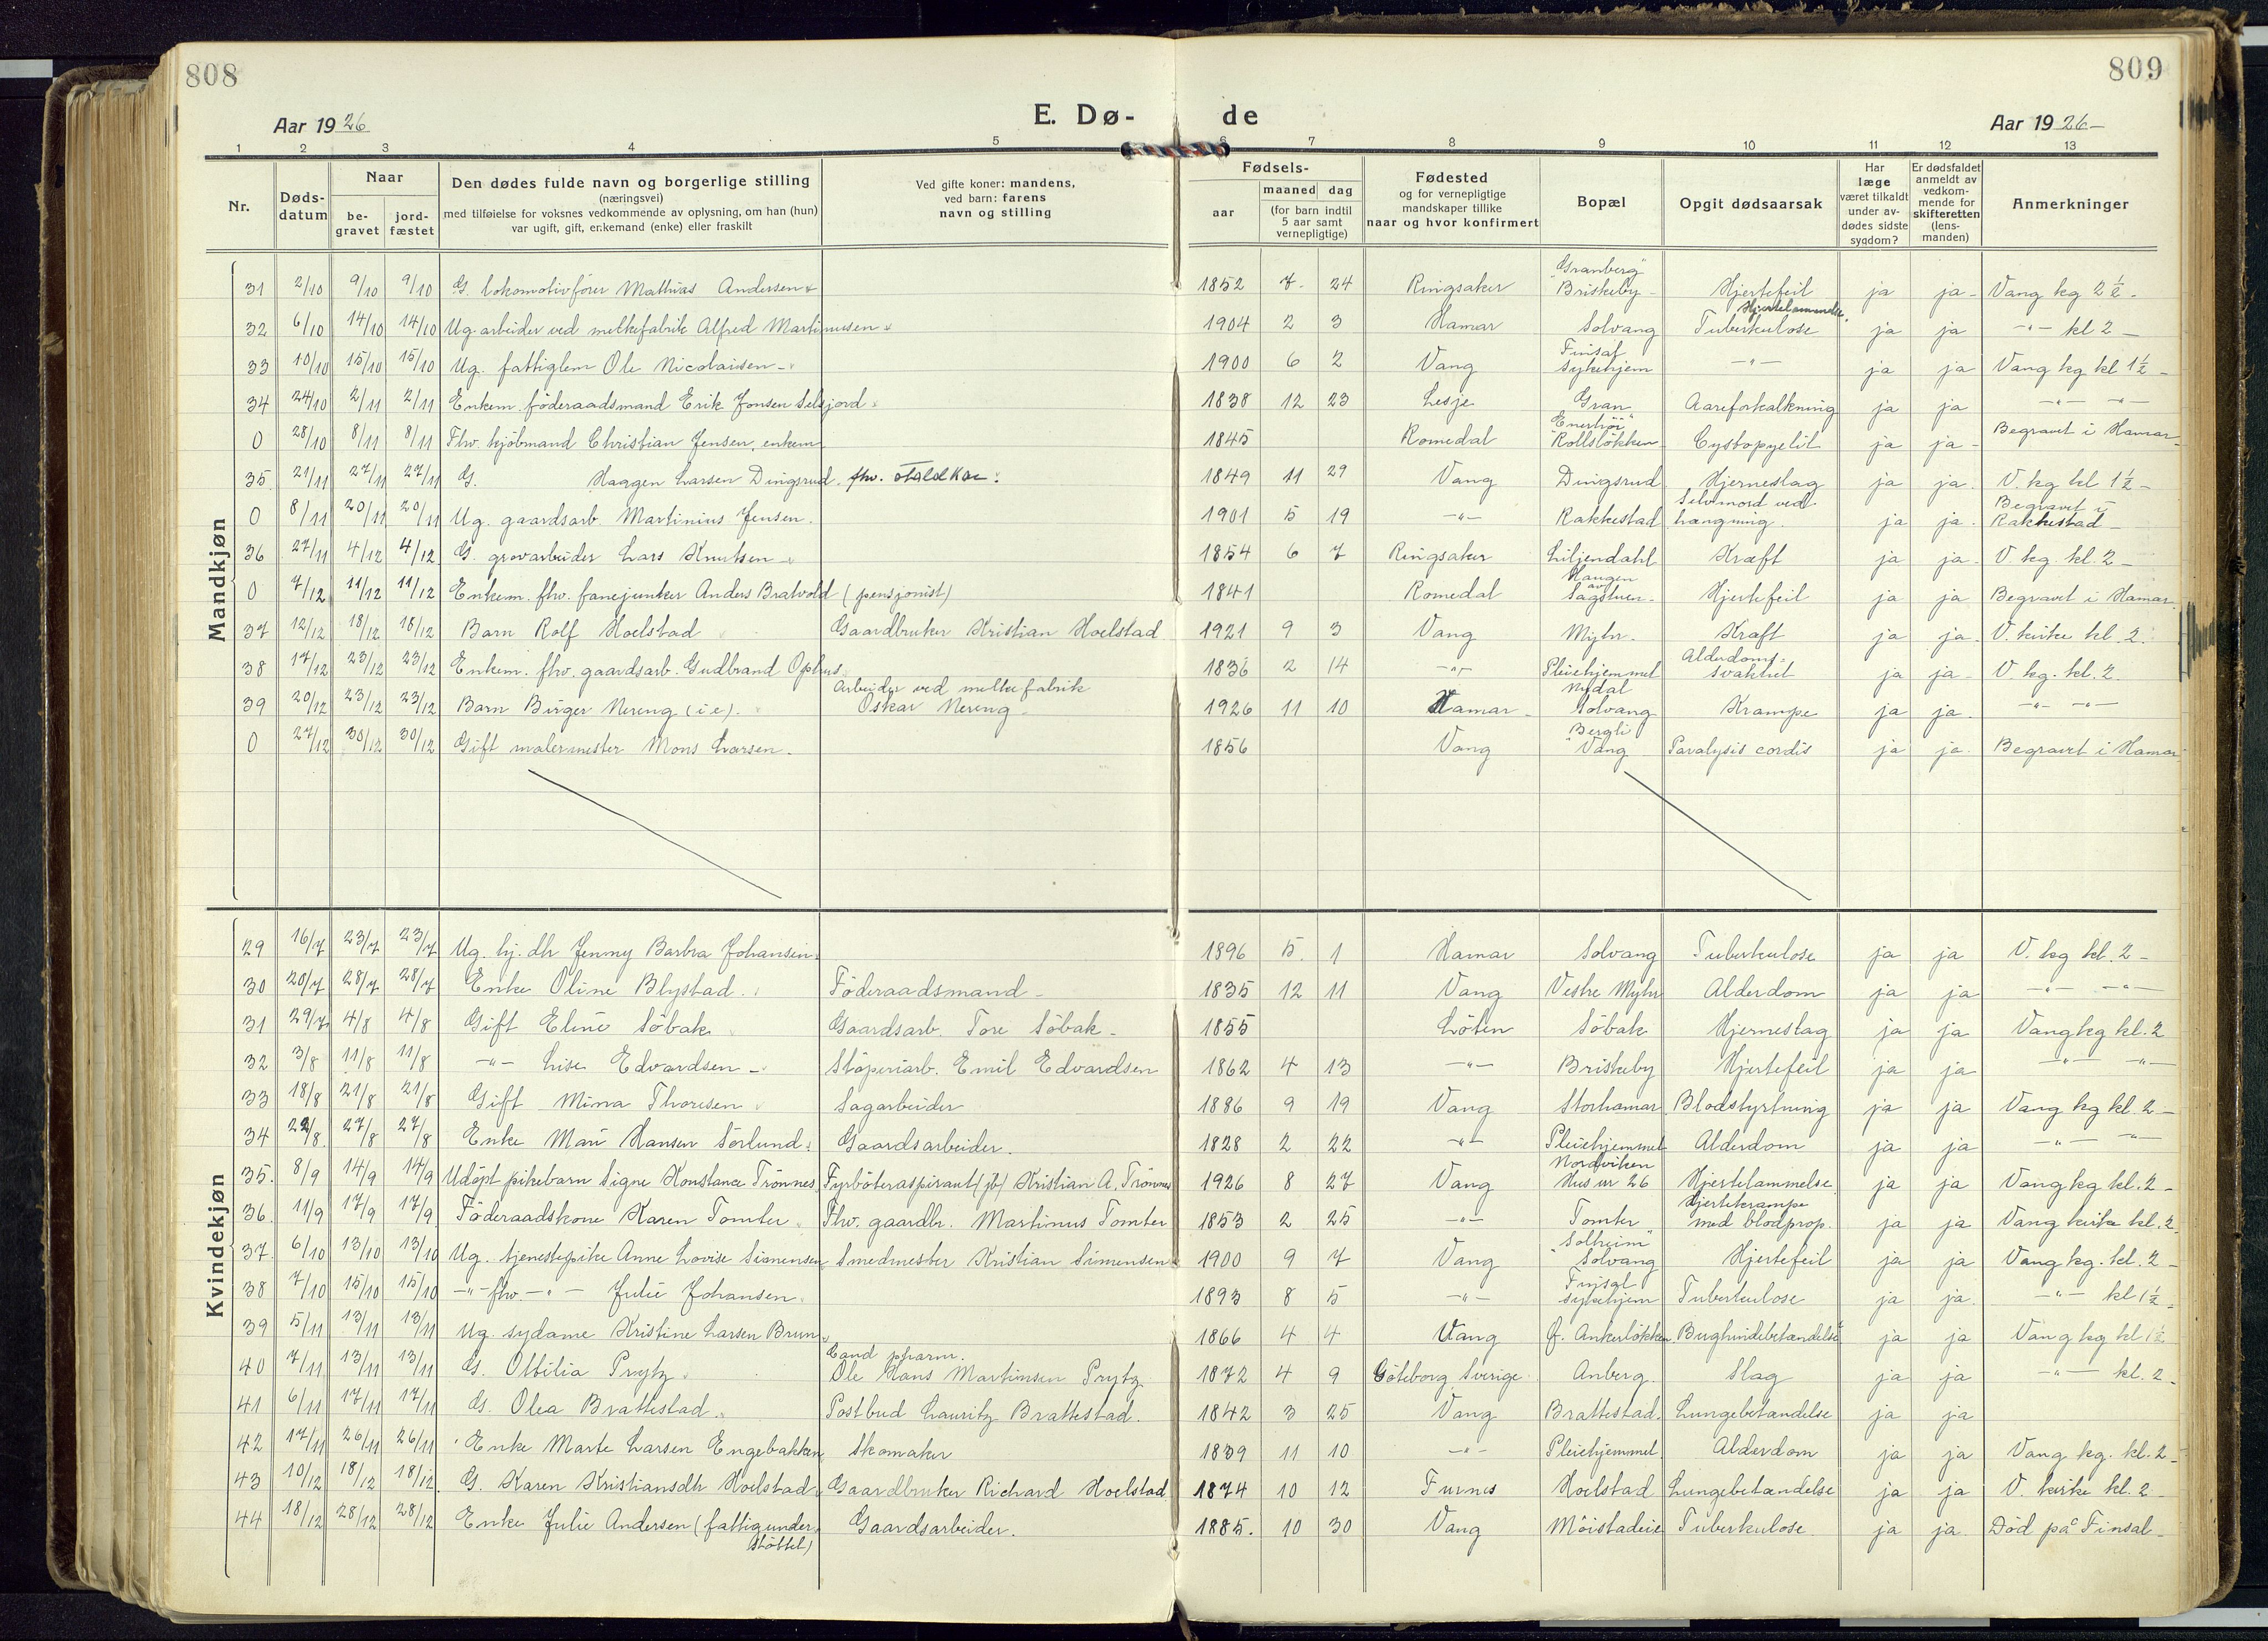 808
809
Aar 1926
E. Dø-
de
Aar 1926-
1 2 3 4 5 6 7 8 9 10 11 12 13
Nr.
Døds-
datum
Naar
be-
gravet
jord-
fæstet
Den dødes fulde navn og borgerlige stilling
(næringsvei)
med tilføielse for voksnes vedkommende av oplysning, om han (hun)
var ugift, gift, enkemand (enke) eller fraskilt
Ved gifte koner: mandens,
ved barn: farens
navn og stilling
Fødsels-
aar
maaned dag
(for barn indtil
5 aar samt
vernepligtige)
Fødested
og for vernepligtige
mandskaper tillike
naar og hvor konfirmert
Bopæl
Opgit dødsaarsak
Har
læge
været tilkaldt
under av-
dødes sidste
sygdom?
Er dødsfaldet
anmeldt av
vedkom-
mende for
skifteretten
(lens-
manden)
Anmerkninger
Mandkjøn
31 2/10 9/10 9/10 G. lokomotivfører Mathias Andersen 1852 7 24 Ringsaker "Granberg" Briskeby Hjertefeil ja ja Vang kg 2 1/2
32 6/10 14/10 14/10 Ug. arbeider ved melkefabrik Alfred Martinusen 1904 2 3 Hamar Solvang Tuberkulose ja ja -"- kl 2
33 10/10 15/10 15/10 Ug. fattiglem Ole Nicolaisen 1900 6 2 Vang Finsal sykehjem -"- ja ja Vang kg kl 1 1/2
34 24/10 2/11 2/11 Enkem. föderaadsmand Erik Jonsen Selsjord 1838 12 23 Lesje Gran Aareforkalkning ja ja -"- -"-
0 28/10 8/11 8/11 Fhv. kjöbmand Christian Jensen, enkem. 1845 Romedal Rollsløkken Cystopyelit ja ja Begravet i Hamar
35 21/11 27/11 27/11 G. Haagen Larsen Dingsrud. fhv. 1849 11 29 Vang Dingsrud Hjerneslag ja ja V. kg kl 1 1/2
0 8/11 20/11 20/11 Ug. gaardsarb. Martinius Jensen. 1901 5 19 -"- Rakkestad Selvmord ved hængning. ja ja Begravet i Rakkestad
36 27/11 4/12 4/12 G. grovarbeider Lars Knutsen 1854 6 7 Ringsaker Liljendahl Kræft ja ja V. kg. kl. 2
0 7/12 11/12 11/12 Enkem. fhv. fanejunker Anders Bratvold (pensjonist) 1841 Romedal Haugen av Sagstuen Hjertefeil ja ja Begravet i Hamar
37 12/12 18/12 18/12 Barn Rolf Hoelstad Gaardbruker Kristian Hoelstad 1921 9 3 Vang Myhr Kræft ja ja V. kirke kl. 2
38 17/12 23/12 23/12 Enkem. fhv. gaardsarb. Gudbrand Ophus 1836 2 14 -"- Pleiehjemmet Alderdoms-svakhet ja ja V. kg. kl. 2
39 20/12 23/12 23/12 Barn Birger Nereng (i.e). Arbeider ved melkefabrik Oskar Nereng 1926 11 10 Hamar Nydal Solvang Krampe ja ja -"- -"-
0 27/12 30/12 30/12 Gift malermester Mons Larsen. 1856 Vang Bergli Vang Paralysis cordis ja ja Begravet i Hamar
Kvindekjøn
29 16/7 23/7 23/7 Ug. hj. dtr Jenny Barbra Johansen 1896 5 1 Hamar Solvang Tuberkulose ja ja V. kg kl. 2
30 20/7 28/7 28/7 Enke Oline Blystad. Föderaadsmand 1835 12 11 Vang Vestre Myhr Alderdom ja ja -"- -"-
31 29/7 4/8 4/8 Gift Eline Söbak Gaardsarb. Tore Söbak 1855 Löten Söbak Hjerneslag ja ja Vang kg kl. 2
32 3/8 11/8 11/8 -"- Lise Edvardsen Stöperiarb. Emil Edvardsen 1862 4 13 -"- Briskeby Hjertefeil ja ja -"- -"-
33 18/8 21/8 21/8 Gift Mina Thoresen Sagarbeider 1886 9 19 Vang Storhamar Blodstyrtning ja ja Vang kg kl. 2
34 22/8 27/8 27/8 Enke Mari Hansen Sørlund Gaardsarbeider. 1828 2 22 -"- Pleiehjemmet Alderdom ja ja -"- -"-
35. 8/9 14/9 14/9 Udöpt pikebarn Signe Konstance Trönnes Fyrböteraspirant (jb) Kristian A. Trönnes 1926 8 27 Vang Nordviken Hus nr 26 Hjertelammelse ja ja Vang kg kl. 2
36. 11/9 17/9 17/9 Föderaadskone Karen Tomter Fhv. gaardbr. Martinus Tomter 1853 2 25 -"- Tomter Hjertekrampe med blodprop. ja ja Vang kirke kl. 2
37. 6/10 13/10 13/10 Ug. tjenestepike Anne Lovise Simensen Smedmester Kristian Simensen 1900 9 7 Vang "Solheim" Solvang Hjertefeil ja ja Vang kg. kl. 2
38 7/10 15/10 15/10 -"- fhv. -"- Julie Johansen 1893 8 5 -"- Finsal sykehjem Tuberkulose ja ja -"- kl 1 1/2
39 5/11 13/11 13/11 Ug. sydame Kristine Larsen Brun 1866 4 4 Vang Ankerløkken Bughindebetændelse ja ja Vang kg kl 1 1/2
40 7/11 13/11 13/11 G. Ottilia Prytz Cand pharm. Ole Hans Martinsen Prytz 1872 4 9 Göteborg Sverige Anberg. Slag ja ja -"- kl. 2
41 6/11 17/11 17/11 G. Olea Brattestad Postbud Lauritz Brattestad. 1842 3 25 Vang Brattestad Lungebetændelse ja ja
42 17/11 26/11 26/11 Enke Marte Larsen Engebakken Skomaker 1839 11 10 -"- Pleiehjemmet Alderdom ja ja Vang kg. kl. 2
43 10/12 18/12 18/12 G. Karen Kristiansdtr Hoelstad Gaardbruker Richard Hoelstad 1874 10 12 Furnes Hoelstad Lungebetændelse ja ja V. kirke kl. 2
44 18/12 28/12 28/12 Enke Julie Andersen (fattigunder-støttet) Gaardsarbeider. 1885. 10 30 Vang Möistadeie Tuberkulose ja ja Död på Finsal